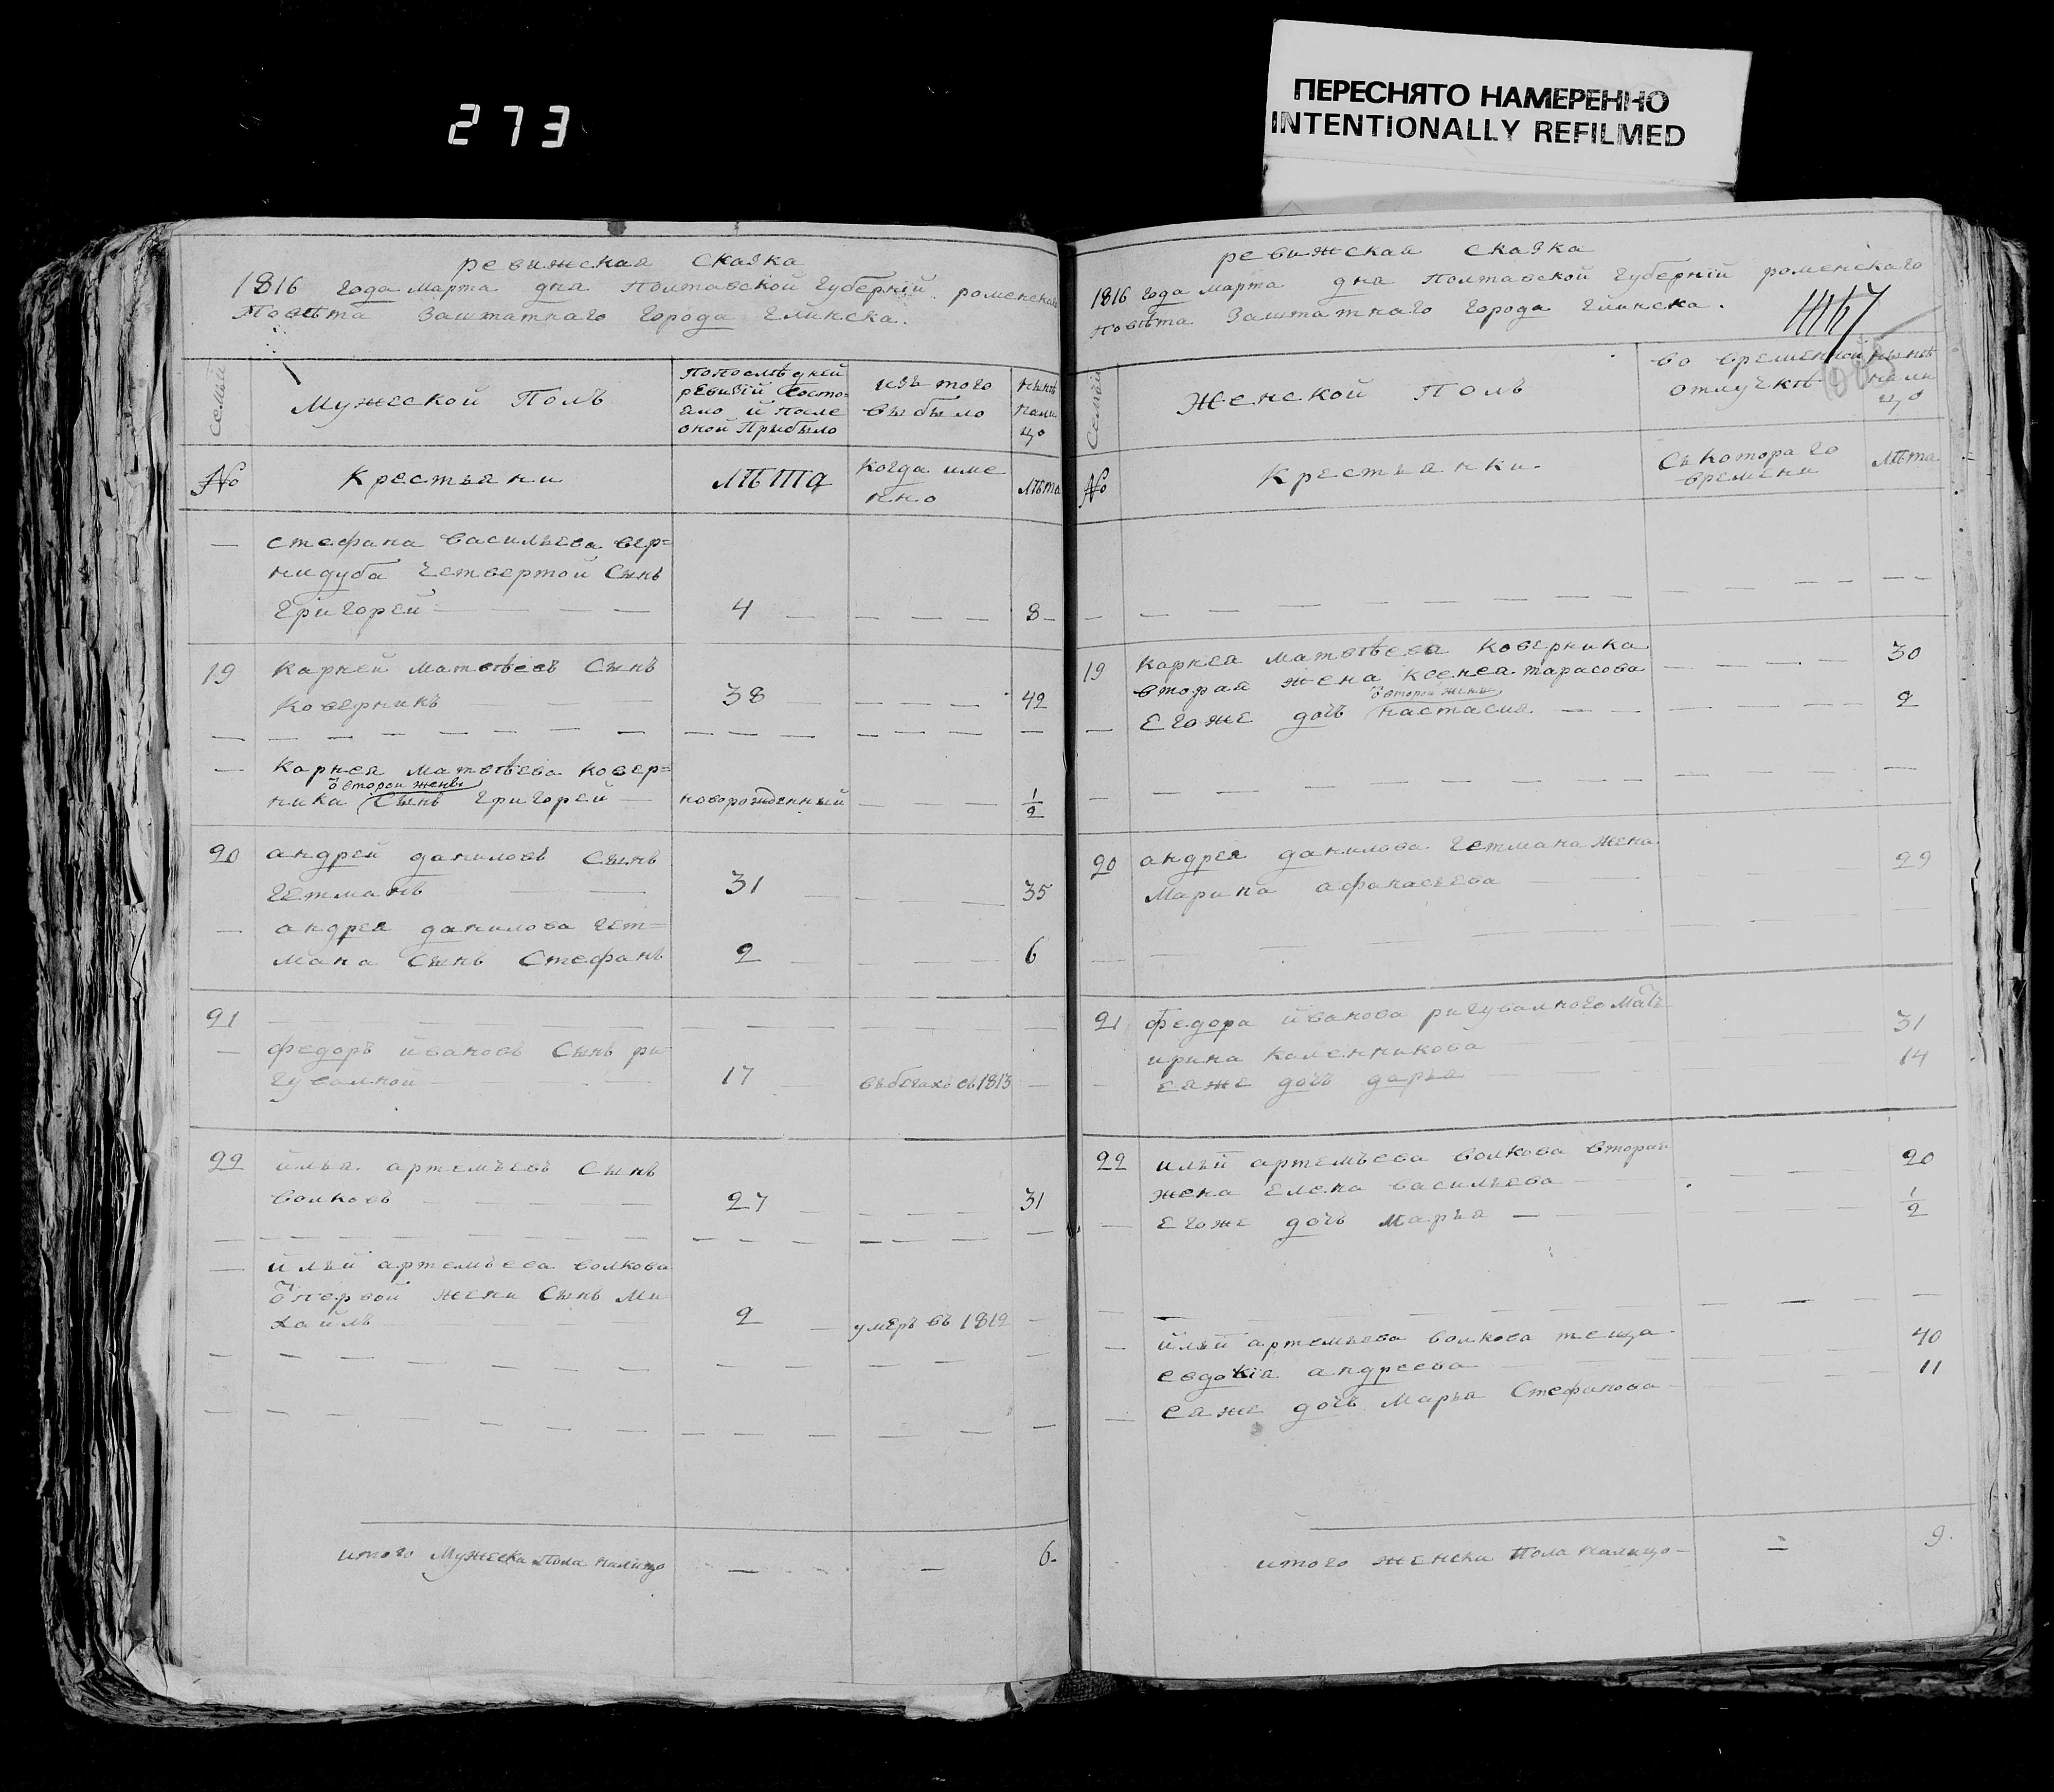 273
ПЕРЕСНЯТО НАМЕРЕННО
INTENTIONALLY REFILMED
ревижская сказка
1816 года марта дня Полтавской Губерній роменскаго
Повѣта Заштатнаго Города Глинска.
Семьи
Мужеской Полъ
Попослѣдней
ревизій Состо-
яло й после
оной Прибыло
изъ того
выбыло
нынѣ
нали
цо
№
Крестьяни
лѣта
когда име
нно
лѣта
— стефана васильева вер=
нидуба четвертой Сынъ
григорей — 4 — 8
19 Карней матвѣевъ Сынъ
Коверникъ 38 — 42
— Карнея матвѣева Ковер=
ѿ второй жены
ника Сынъ григорей — новорожденный — 1/2
20 андрей даниловъ Сынъ
гетманъ 31 — 35
— андрея данилова гет=
мана Сынъ Стефанъ 2 — 6
21
— федоръ йвановъ Сынъ ри
гувалной 17 въбегахъ съ 1813
22 илья артемьевъ Сынъ
волковъ 27 — 31
— йльй артемьева волкова
ѿ первой жени Сынъ ми
хайлъ 2 умеръ въ 1812
итого Мужеска Пола налицо — — 6
ревижская сказка
1816 года марта дня Полтавской Губерній роменскаго
повѣта Заштатнаго Города глинска.
Семьи
Женской Полъ
во временной
отлучкѣ
нынѣ
нали
цо
№
Крестьянки
Съ котораго
времени
лѣта
19 Карнея матвѣева коверника
вторая жена Ксенея тарасова — 30
ѿ второй жены
— Егоже дочь настасия — 2
20 андрея данилова гетмана жена
Марина афанасьева — 29
21 федора йванова ригувалного мать
ирина каленникова — 31
— еяже дочь дарья — 14
22 ильй артемьева волкова вторая
жена Елена васильева — 20
— Егоже дочь марья — 1/2
— йльй артемьева волкова теща
евдокія андреева — 40
— еяже дочь Марья Стефанова — 11
итого женска Пола налицо — 9